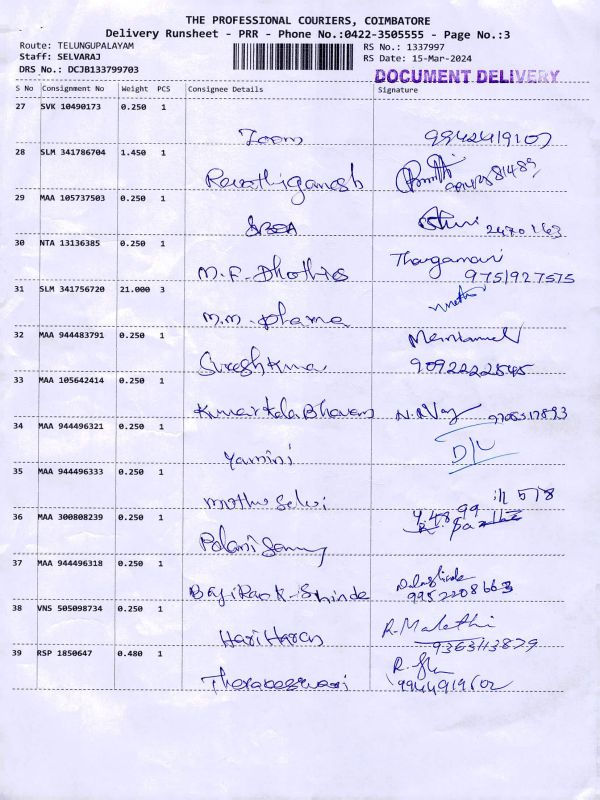 THE PROFESSIONAL COURIERS, COIMBATORE
Delivery Runsheet - PRR - Phone No.:0422-3505555 - Page No.:3
Route: TELUNGUPALAYAM RS No.: 1337997
Staff: SELVARAJ RS Date: 15-Mar-2024
DRS No.: DCJB133799703 DOCUMENT DELIVERY
S No Consignment No Weight PCS Consignee Details Signature
27 SVK 10490173 0.250 1
Zoom
28 SLM 341786704 1.450 1
Revathiganesh
29 MAA 105737503 0.250 1
30 NTA 13136385 0.250 1
M.F. Dhothres Thangamani
9751927575
31 SLM 341756720 21.000 3
M.M. Phama
32 MAA 944483791 0.250 1
Sureshkumar 9092222545
33 MAA 105642414 0.250 1
Kumar Kala Bhavan
34 MAA 944496321 0.250 1
Yamini D/L
35 MAA 944496333 0.250 1
Muthu Selvi
36 MAA 300808239 0.250 1
Palani Samy
37 MAA 944496318 0.250 1
Bajirao K. Shinde
38 VNS 505098734 0.250 1
Hari Haran R. Malathi
39 RSP 1850647 0.480 1 9363113829
9944919602